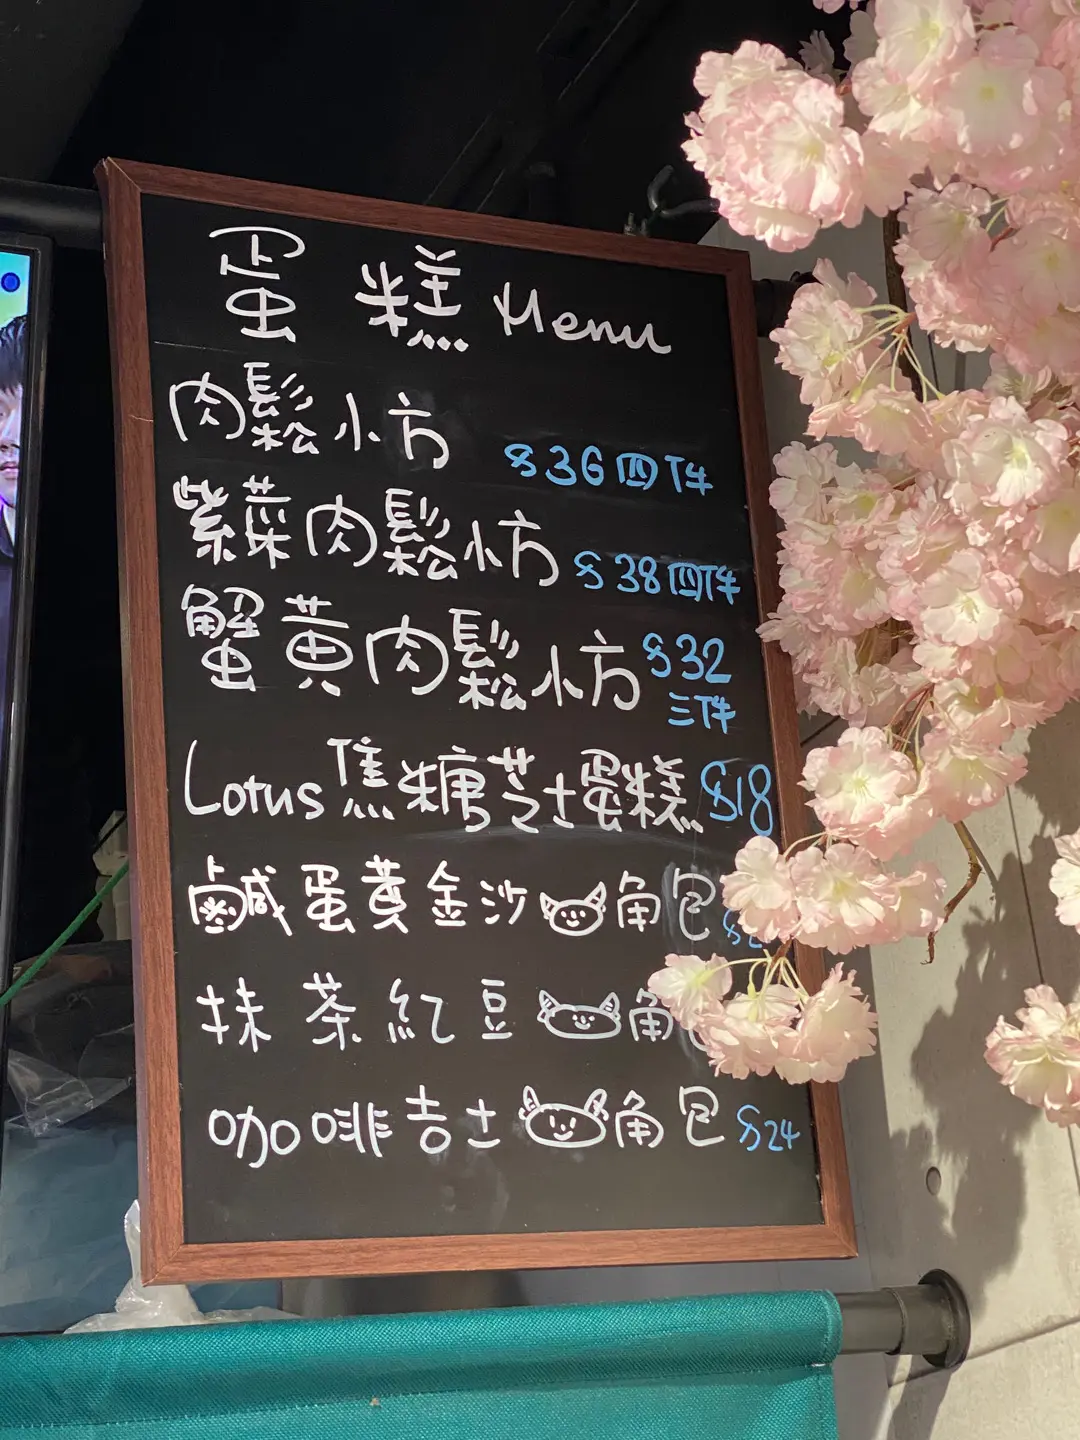 蛋糕 Menu
肉鬆小方 $36四件
紫菜肉鬆小方 $38四件
蟹黄肉鬆小方 $32
三件
Lotus焦糖芝士蛋糕 $18
鹹蛋黄金沙角包 $2
抹茶紅豆角
咖啡吉士角包 $24